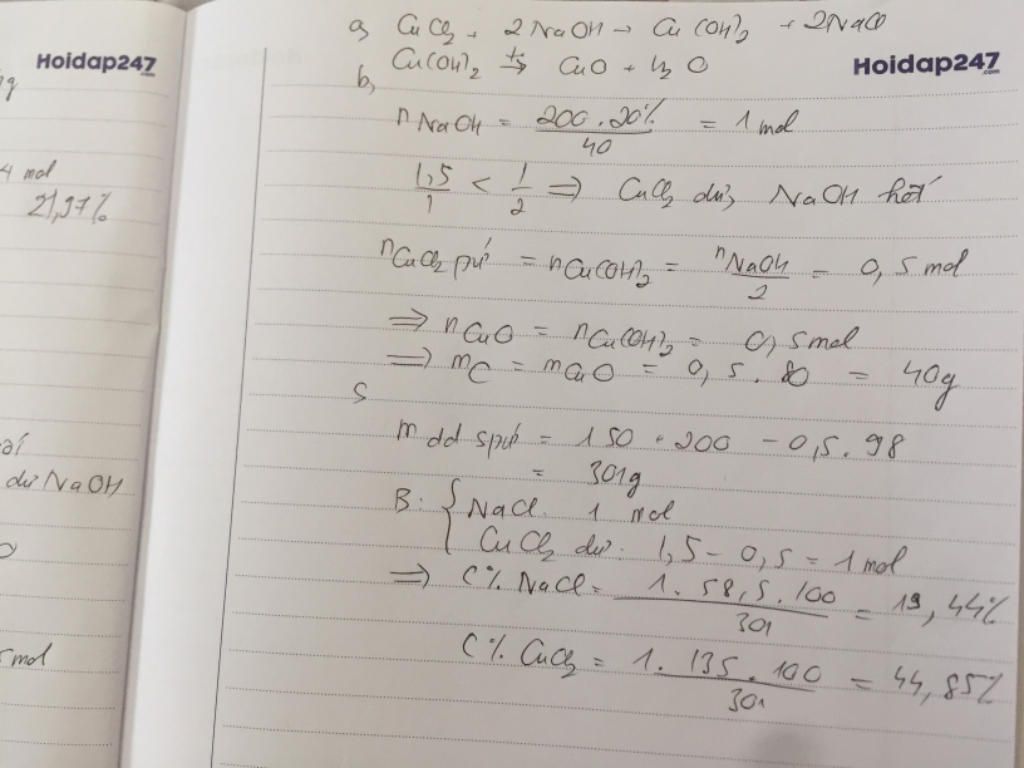 Hoidap247
.com
g
4 mol
21,97%
dư NaOH
mol
Hoidap247
.com
a, CuCl2 + 2NaOH → Cu(OH)2 + 2NaCl
Cu(OH)2 t°→ CuO + H2O
b,
nNaOH = 200.20% / 40 = 1 mol
1,5/1 < 1/2 => CuCl2 dư, NaOH hết
nCuCl2 pứ = nCu(OH)2 = nNaOH / 2 = 0,5 mol
=> nCuO = nCu(OH)2 = 0,5 mol
=> mC = mCuO = 0,5.80 = 40g
c,
m dd spứ = 150 + 200 - 0,5.98
= 301g
B: { NaCl: 1 mol
CuCl2 dư: 1,5 - 0,5 = 1 mol
=> C% NaCl = 1.58,5.100 / 301 = 19,44%
C% CuCl2 = 1.135.100 / 301 = 44,85%